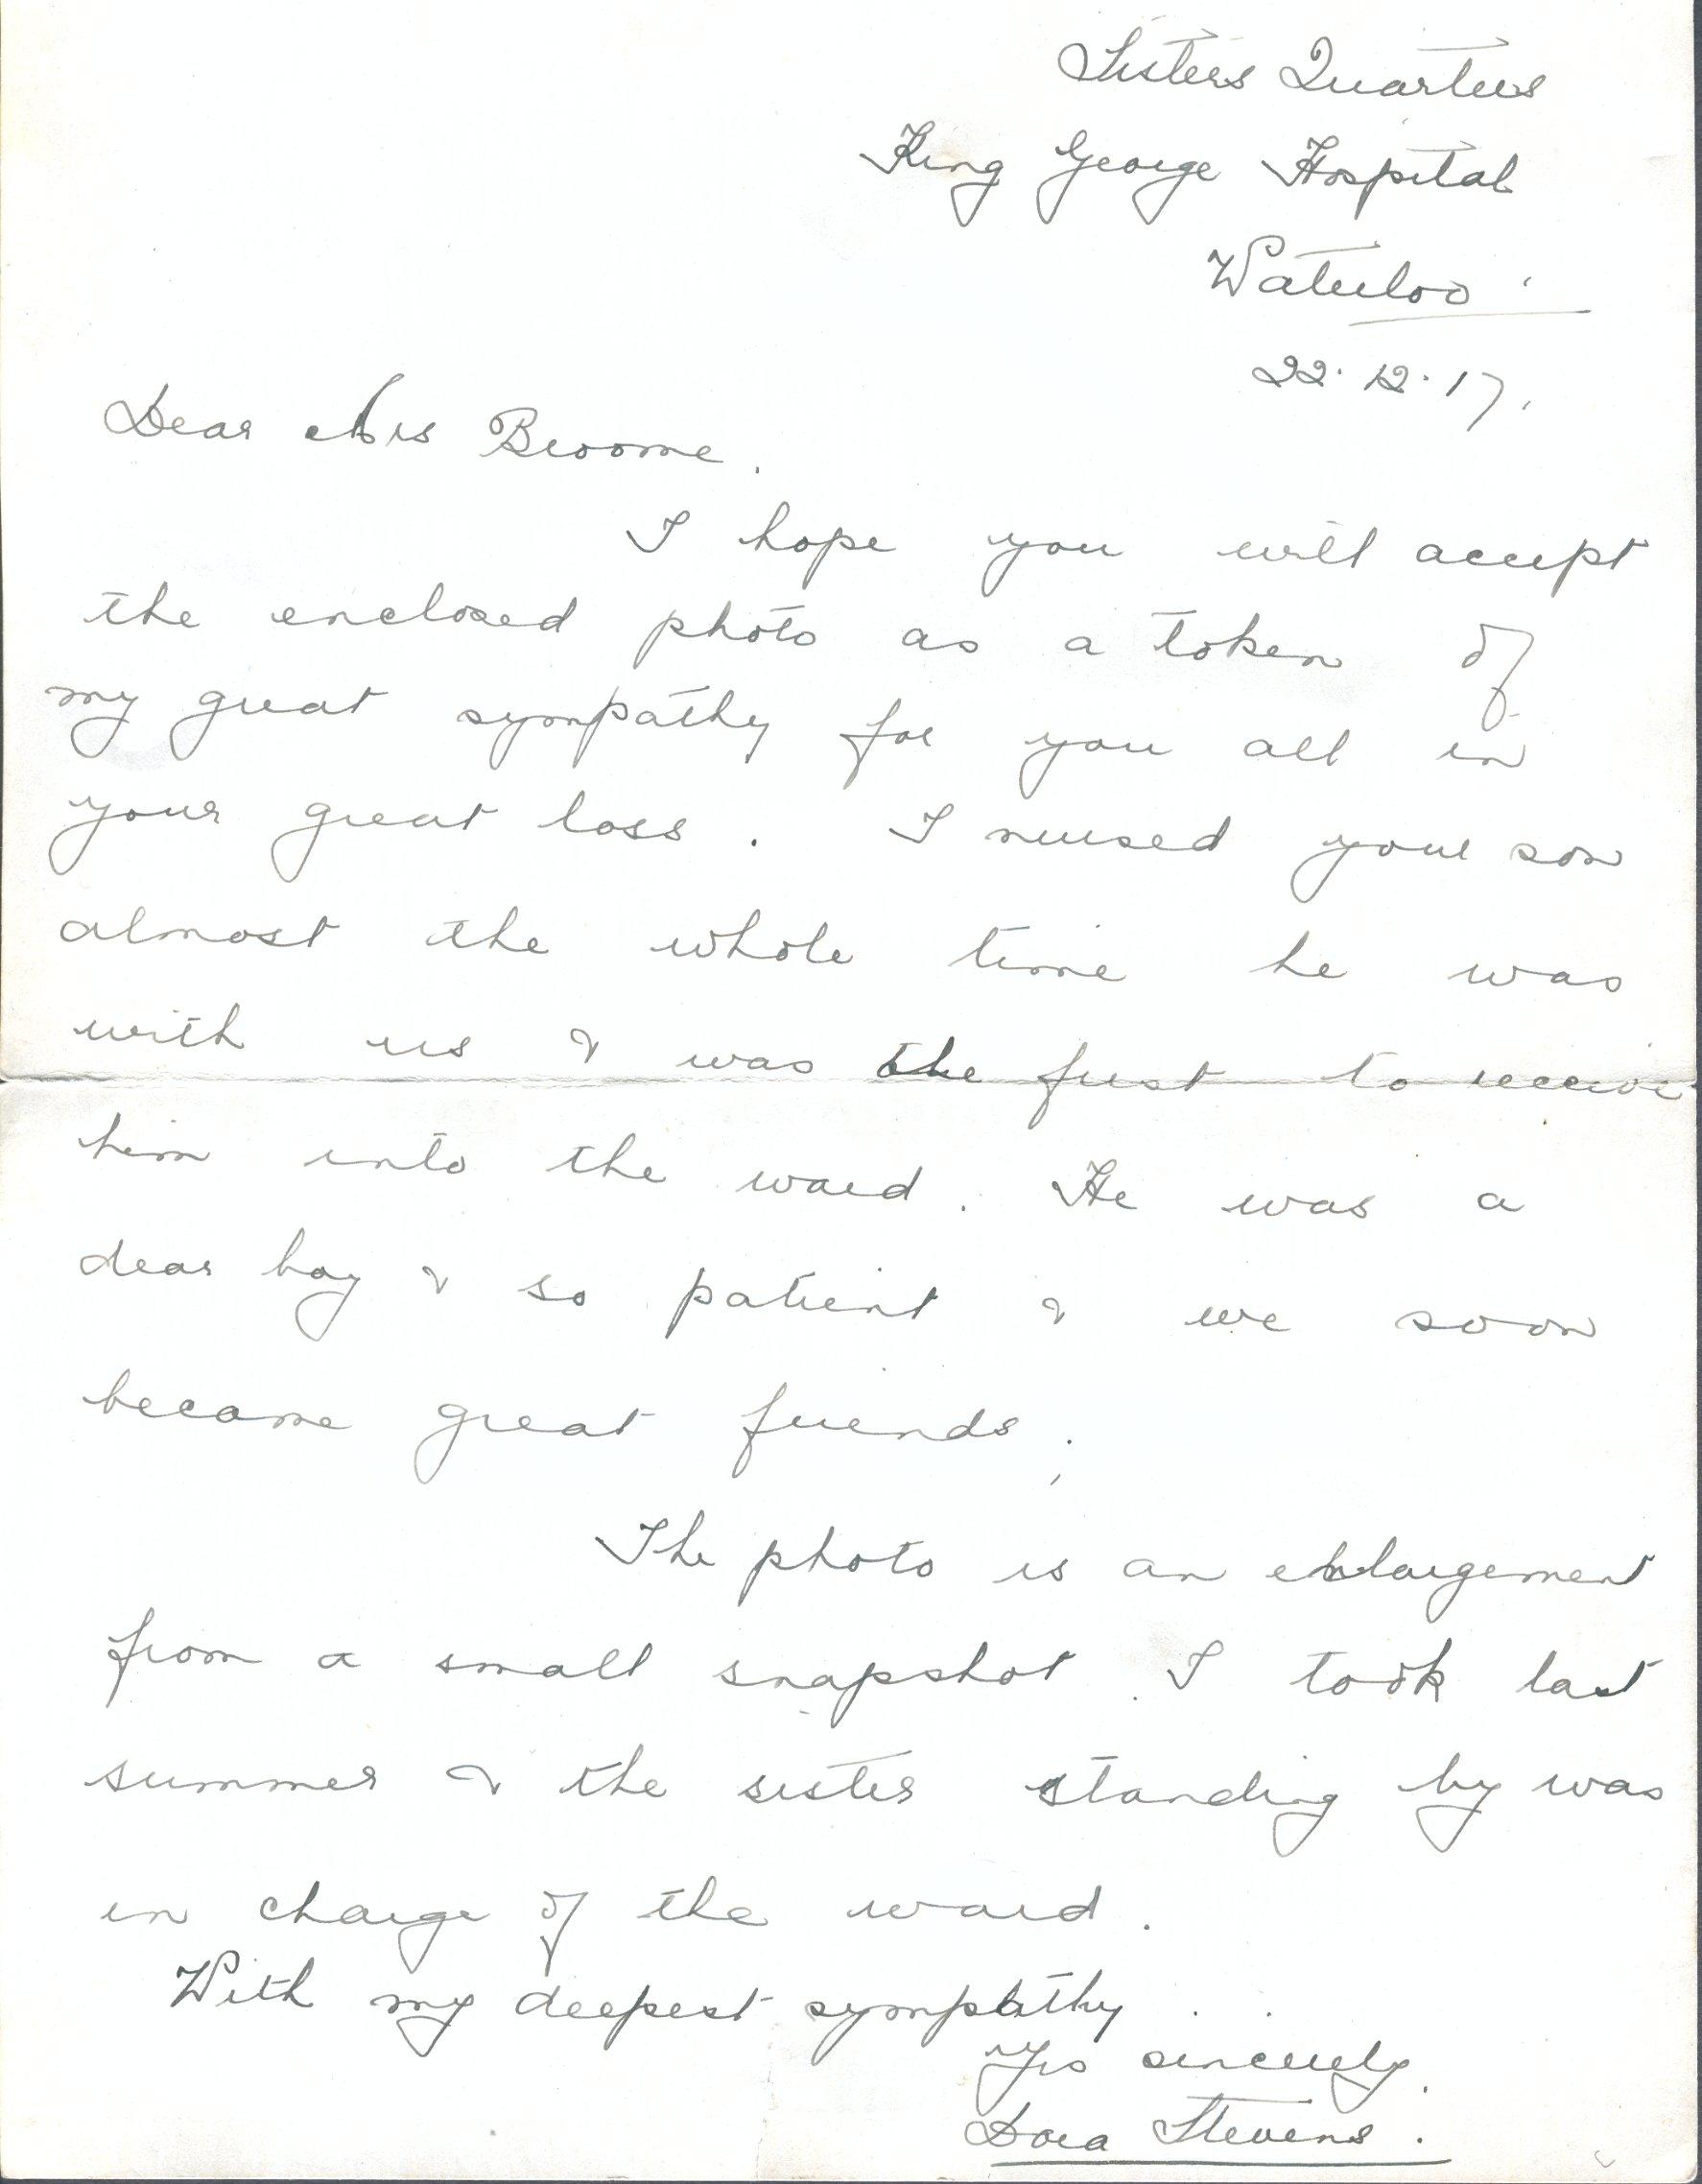 Sisters Quarters
King George Hospital
Waterloo.
22.12.17.
Dear Mrs Broome.
I hope you will accept
the enclosed photo as a token of
my great sympathy for you all in
your great loss. I nursed your son
almost the whole time he was
with us & was the first to receive
him into the ward. He was a
dear boy & so patient & we soon
became great friends.
The photo is an enlargement
from a small snapshot I took last
summer & the sister standing by was
in charge of the ward.
With my deepest sympathy.
Yrs sincerely.
Dora Stevens.